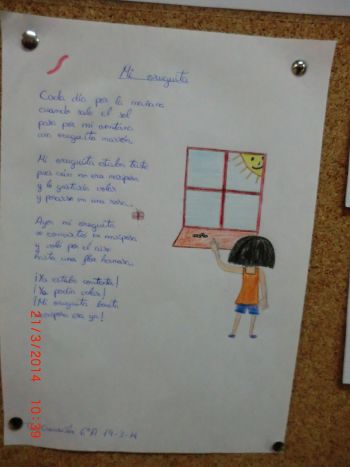 Mi oruguita
Cada día por la mañana
cuando sale el sol
pasa por mi ventana
una oruguita marrón.
Mi oruguita estaba triste
pues aún no era mariposa
y le gustaría volar
y posarse en una rosa...
Ayer mi oruguita
se convirtió en mariposa
y voló por el aire
hasta una flor hermosa.
¡Ya estaba contenta!
¡Ya podía volar!
¡Mi oruguita
mariposa era ya!
6ºA 19-3-14
21/3/2014 10:39